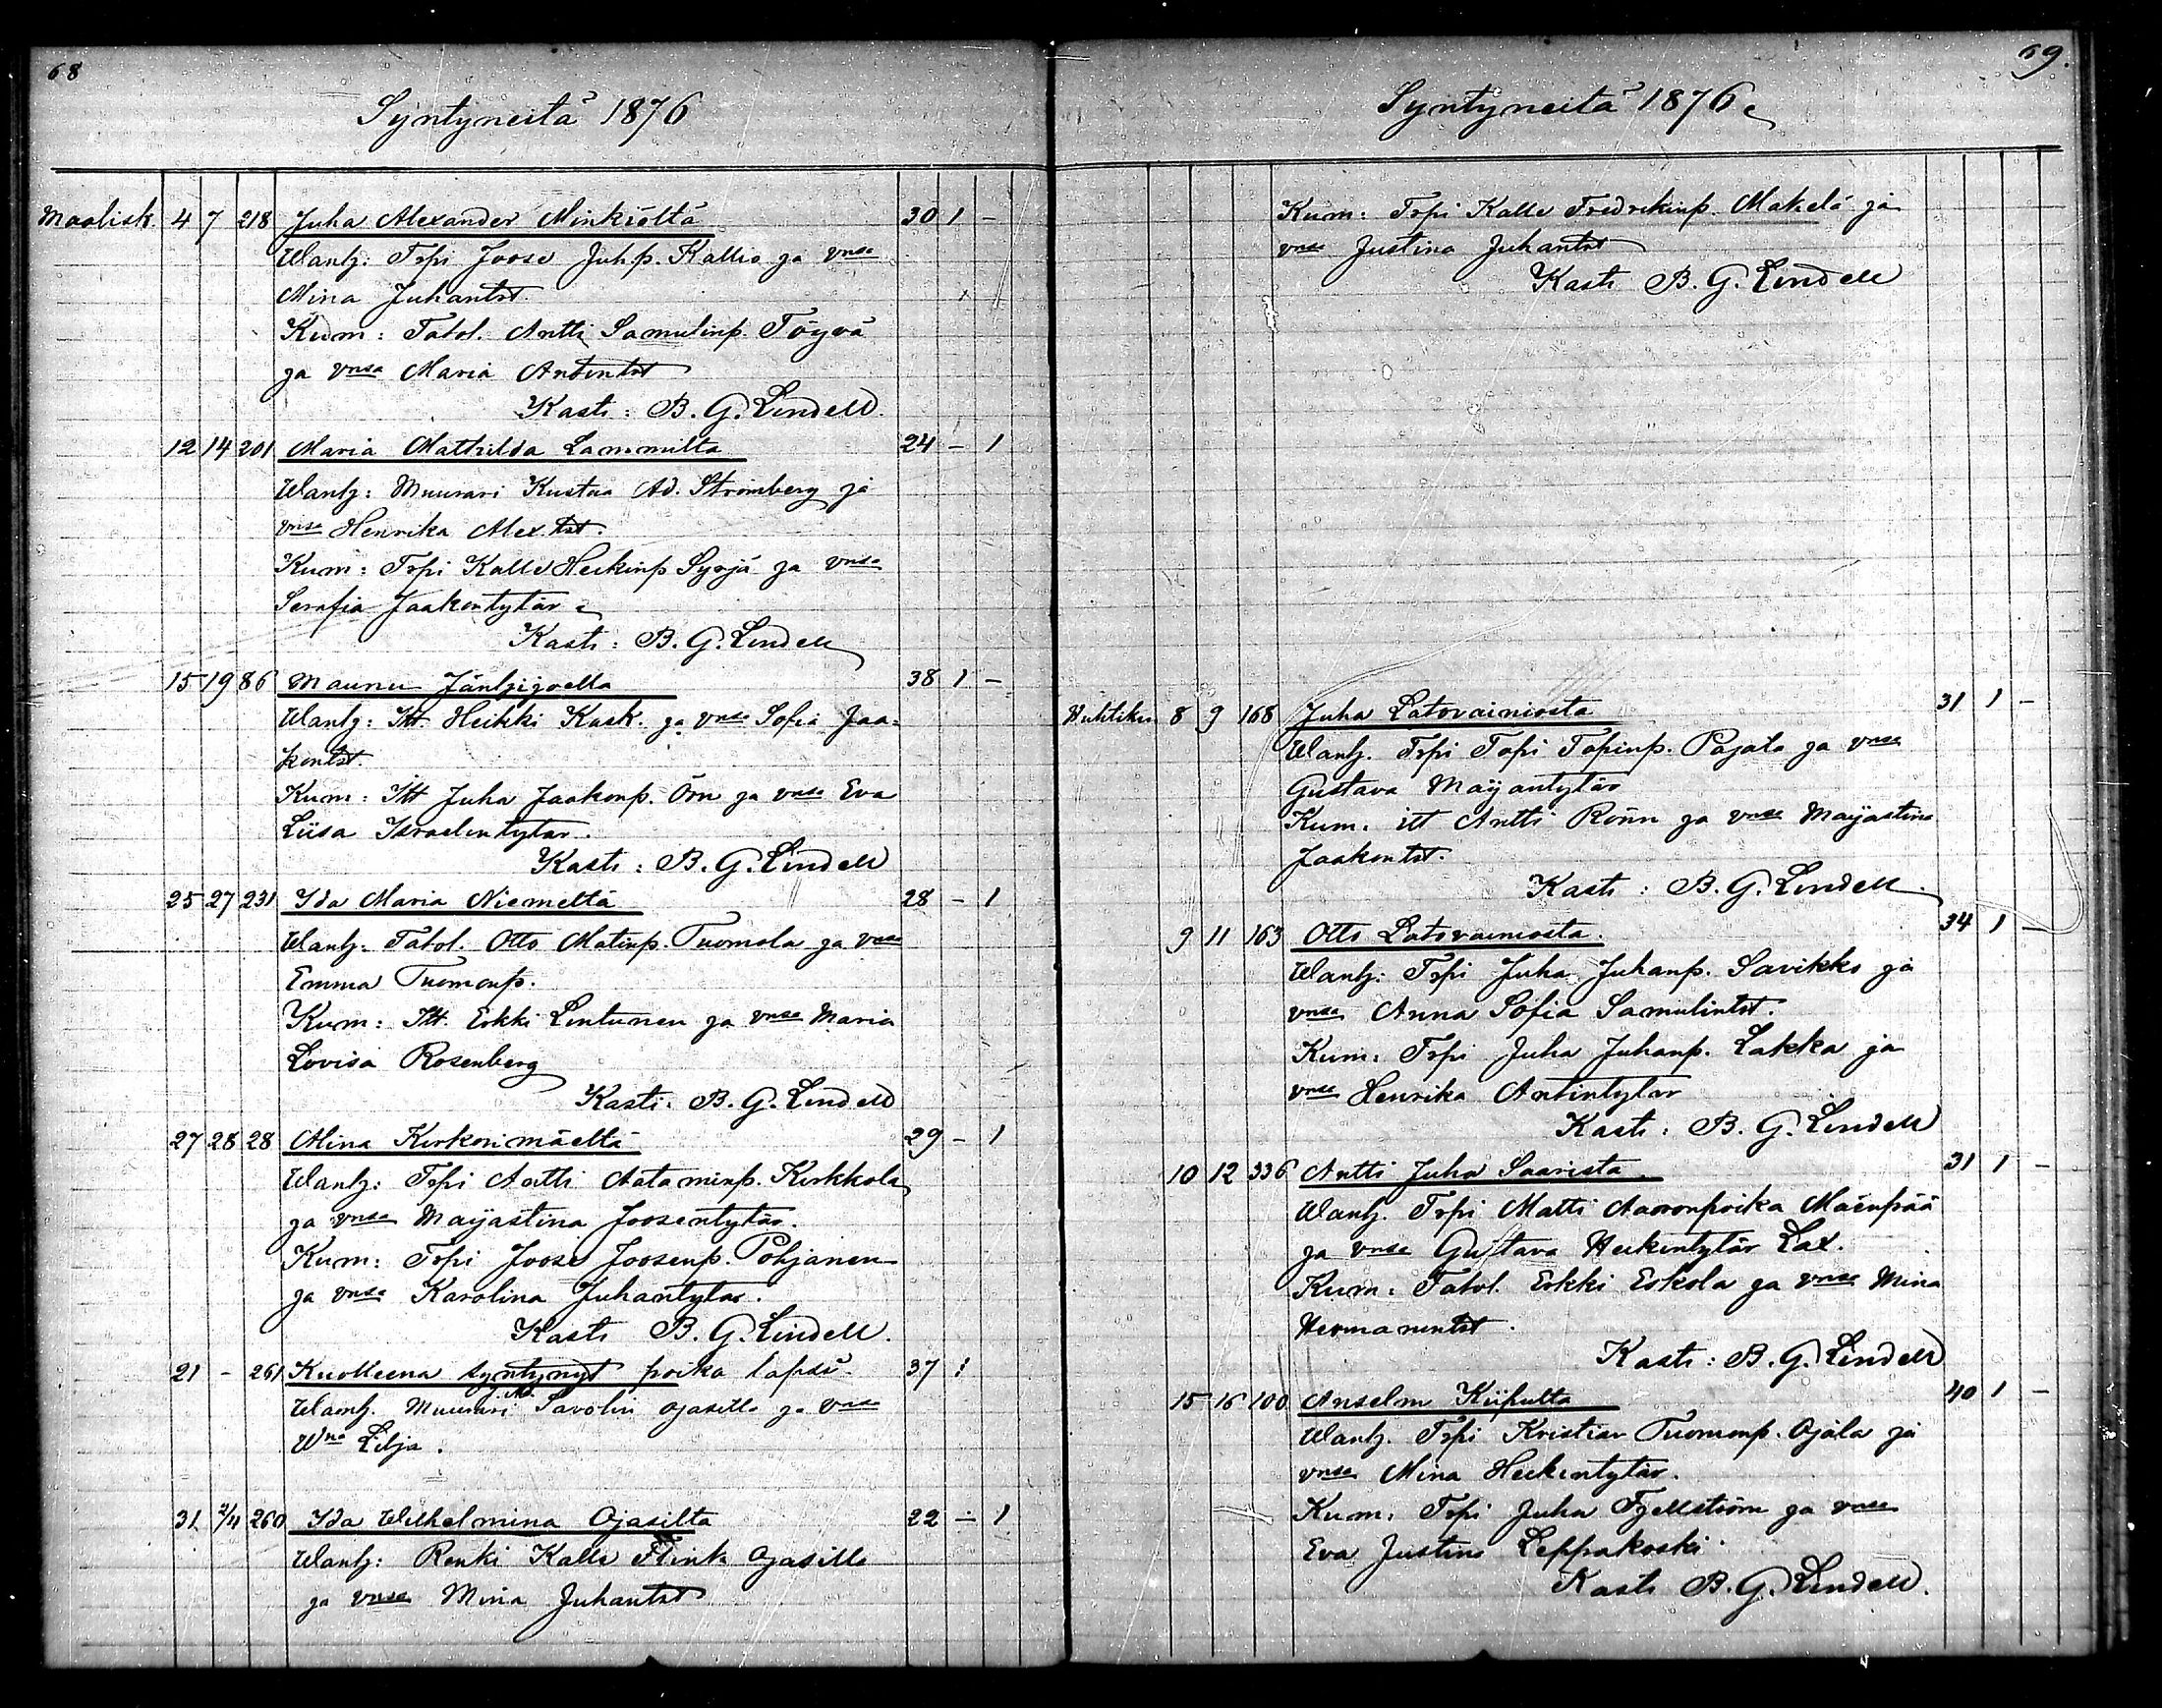 68
Syntyneitä 1876
Maalisk. 4 7 218 Juha Alexander Minkiöltä 30 1 –
Wanh: Trpi Joose Juhp. Kallio ja vnsa
Mina Juhantst.
Kum: Tatol. Antti Samulinp. Töyrä
ja vnsa Maria Antintst
Kasti: B. G. Lindell.
12 14 201 Maria Mathilda Lammilta 24 – 1
Wanh: Muurari Kustaa Ad. Strömberg ja
vnsa Henrika Alex.tst.
Kum: Trpi Kalle Heikinp Syrjä ja vnsa
Serafia Jaakontytär
Kasti: B. G. Lindell
15 19 86 Maunu Jäntjijoella 38 1 –
Wanh: Itt. Heikki Kask. ja vnsa Sofia Jaa-
kontst.
Kum: Itt Juha Jaakonp. Örn ja vnsa Eva
Liisa Israelintytär.
Kasti: B. G. Lindell
25 27 231 Ida Maria Niemeltä 28 – 1
Wanh. Tatol. Otto Matinp. Tuomola ja vnsa
Emma Tuomonp.
Kum: Itt. Erkki Lintunen ja vnsa Maria
Lovisa Rosenberg
Kasti: B. G. Lindell
27 28 28 Mina Kirkonmäeltä 29 – 1
Wanh: Trpi Antti Aataminp. Kirkkola
ja vnsa Maijastina Joosentytär.
Kum: Trpi Joose Joosenp. Pohjanen
ja vnsa Karolina Juhantytär.
Kasti B. G. Lindell.
21 – 261 Kuolleena syntynyt poika lapsi 37 1
Wanh. Muurari Savolin Ojasilta ja vnsa
Wna Lilja.
31 2/4 260 Ida Wilhelmina Ojasilta 22 – 1
Wanh: Renki Kalle Flink Ojasilla
ja vnsa Mina Juhantst
69.
Syntyneitä 1876
Kum: Trpi Kalle Fredrikinp. Mäkelä ja
vnsa Justina Juhantst
Kasti B. G. Lindell
Huhtiku 8 9 168 Juha Latovainiosta 31 1 –
Wanh. Trpi Topi Topinp. Pajala ja vnsa
Gustava Maijantytär
Kum. itt Antti Rönn ja vnsa Maijastina
Jaakontst.
Kasti: B. G. Lindell.
9 11 163 Otto Latovainiosta. 34 1 –
Wanh: Trpi Juha Juhanp. Savikko ja
vnsa Anna Sofia Samulintst.
Kum: Trpi Juha Juhanp. Lakka ja
vnsa Henrika Antintytär
Kasti: B. G. Lindell
10 12 336 Antti Juha Saarista. 31 1 –
Wanh. Trpi Matti Aaronpoika Mäenpää
ja vnsa Gustava Heikintytär Lax.
Kum: Tatol. Erkki Eskola ja vnsa Mina
Hermanintst.
Kasti: B. G. Lindell
15 16 100 Anselm Kiipulta 40 1 –
Wanh. Trpi Kristian Tuomonp. Ojala ja
vnsa Mina Heikintytär.
Kum. Trpi Juha Fjellström ja vnsa
Eva Justina Leppakoski.
Kasti B. G. Lindell.